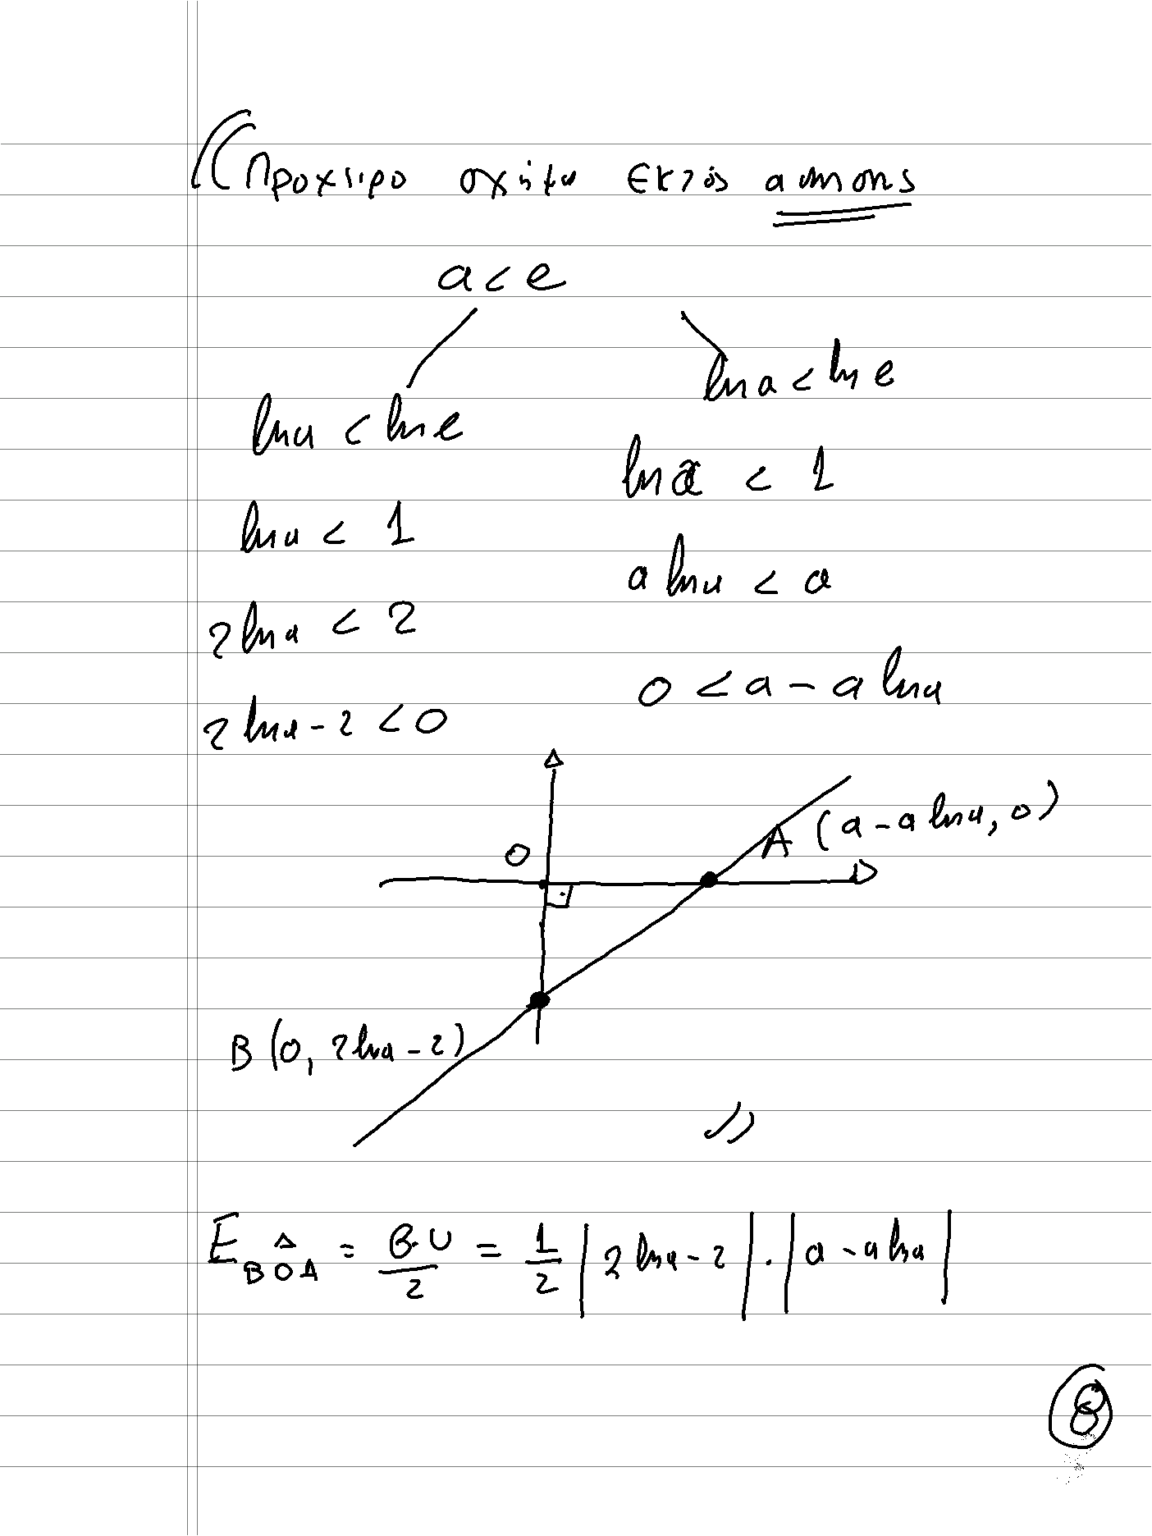 ((Προχειρο σχήμα εκτός άσκησης
a < e
lna < lne
lna < 1
2lna < 2
2lna - 2 < 0
lna < lne
lna < 1
a lna < a
0 < a - a lna
O
A (a - a lna, 0)
B (0, 2lna - 2)
))
E BOA = B·U/2 = 1/2 |2lna - 2| · |a - a lna|
8